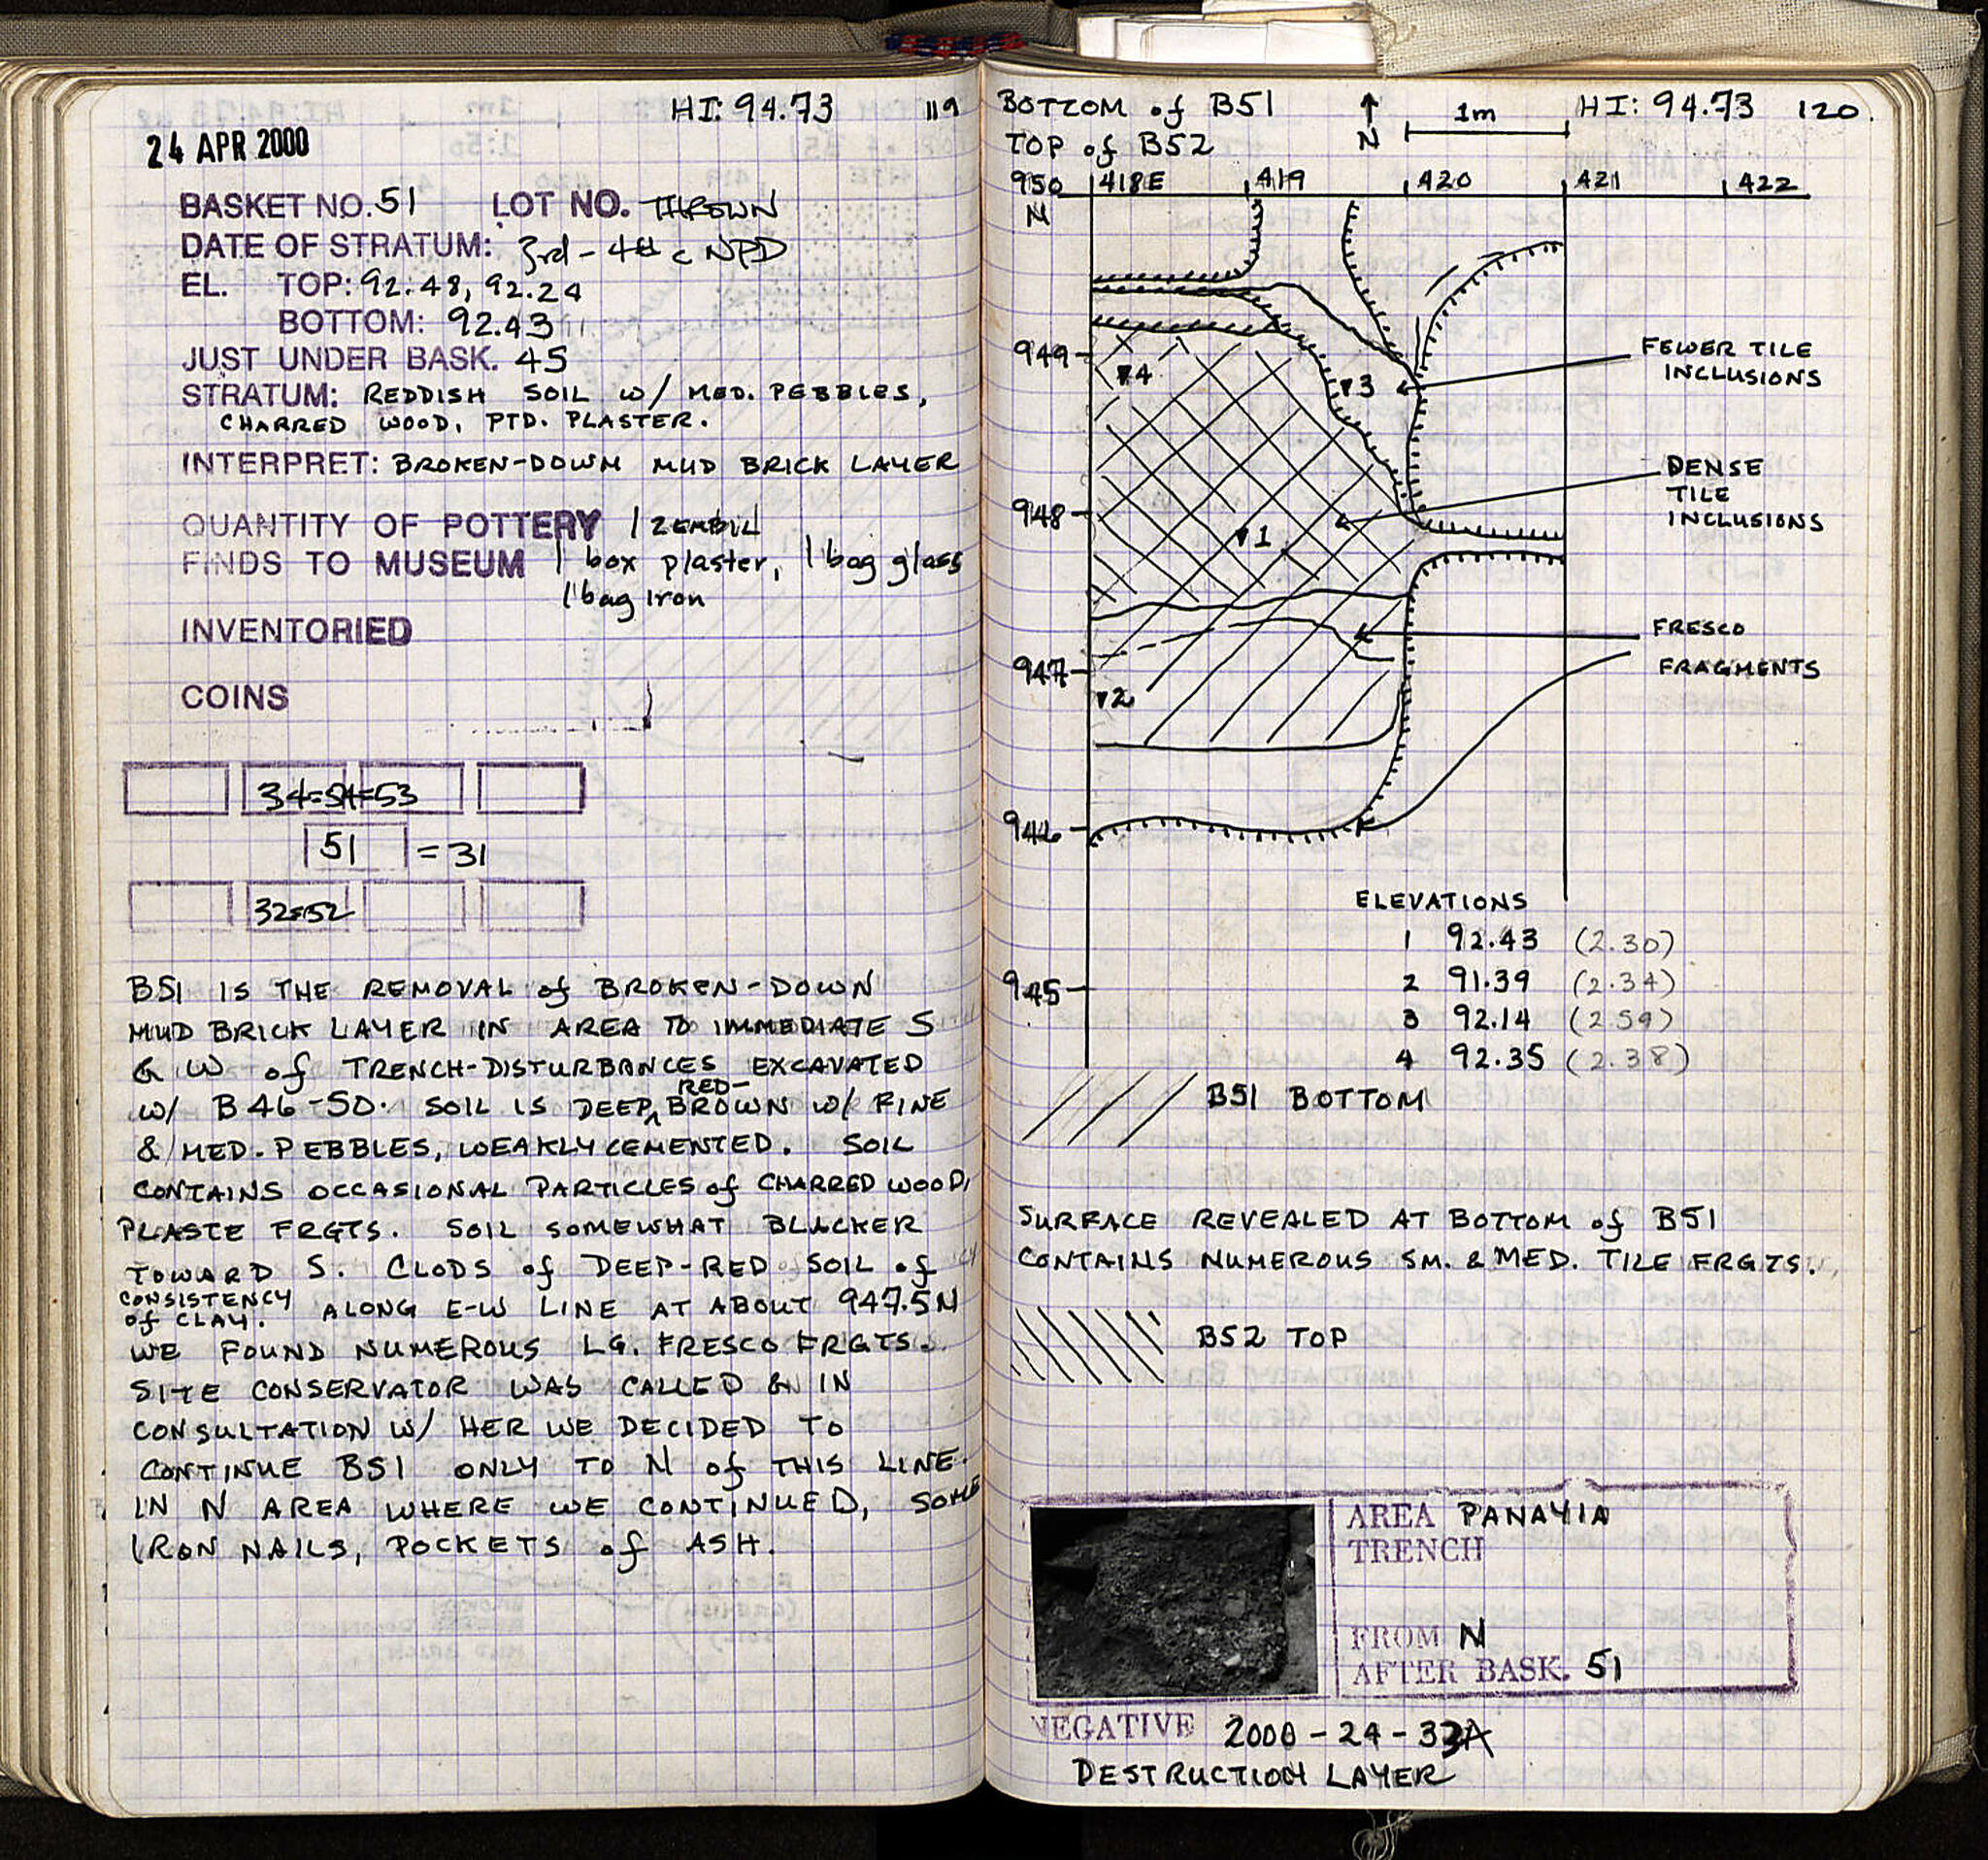 HI: 94.73 119
24 APR 2000
BASKET NO. 51 LOT NO. THROWN
DATE OF STRATUM: 3rd - 4th c NPD
EL. TOP: 92.48, 92.24
BOTTOM: 92.43
JUST UNDER BASK. 45
STRATUM: REDDISH SOIL W/ MED. PEBBLES,
CHARRED WOOD, PTD. PLASTER.
INTERPRET: BROKEN-DOWN MUD BRICK LAYER
QUANTITY OF POTTERY 1 ZEMBIL
FINDS TO MUSEUM 1 box plaster, 1 bag glass
1 bag iron
INVENTORIED
COINS
34=54=53
51 = 31
32=52
B51 IS THE REMOVAL of BROKEN-DOWN
MUD BRICK LAYER IN AREA TO IMMEDIATE S
& W of TRENCH-DISTURBANCES EXCAVATED
W/ B46-50. SOIL IS DEEP RED-BROWN W/ FINE
& MED. PEBBLES, WEAKLY CEMENTED. SOIL
CONTAINS OCCASIONAL PARTICLES of CHARRED WOOD,
PLASTE FRGTS. SOIL SOMEWHAT BLACKER
TOWARD S. CLODS of DEEP-RED SOIL of
CONSISTENCY of CLAY. ALONG E-W LINE AT ABOUT 947.5N
WE FOUND NUMEROUS LG. FRESCO FRGTS.
SITE CONSERVATOR WAS CALLED & IN
CONSULTATION W/ HER WE DECIDED TO
CONTINUE B51 ONLY TO N of THIS LINE.
IN N AREA WHERE WE CONTINUED, SOME
IRON NAILS, POCKETS of ASH.
BOTTOM of B51 N 1m HI: 94.73 120.
TOP of B52
950 N 418E 419 420 421 422
949
FEWER TILE
INCLUSIONS
4 3
DENSE
TILE
INCLUSIONS
948
1
FRESCO
FRAGMENTS
947
2
946
ELEVATIONS
1 92.43 (2.30)
2 91.39 (2.34)
945
3 92.14 (2.59)
4 92.35 (2.38)
B51 BOTTOM
SURFACE REVEALED AT BOTTOM of B51
CONTAINS NUMEROUS SM. & MED. TILE FRGTS.
B52 TOP
AREA PANAYIA
TRENCH
FROM N
AFTER BASK. 51
NEGATIVE 2000-24-33A
DESTRUCTION LAYER